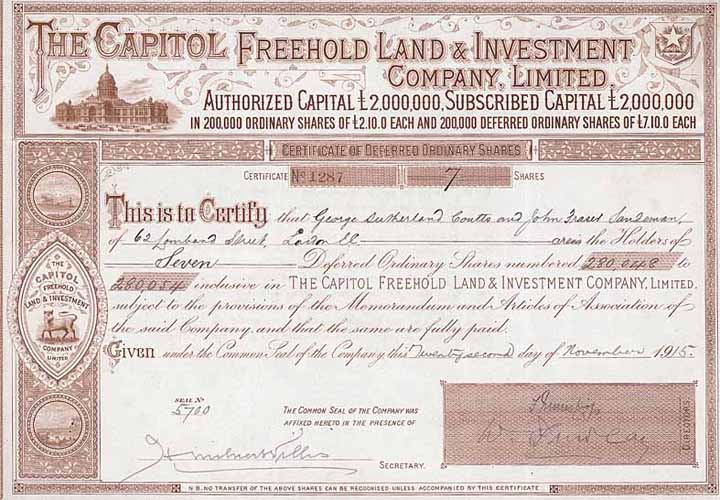 THE CAPITOL FREEHOLD LAND & INVESTMENT
COMPANY, LIMITED.
AUTHORIZED CAPITAL £2,000,000, SUBSCRIBED CAPITAL £2,000,000
IN 200,000 ORDINARY SHARES OF £2.10.0 EACH AND 200,000 DEFERRED ORDINARY SHARES OF £7.10.0 EACH
CERTIFICATE OF DEFERRED ORDINARY SHARES
CERTIFICATE No 1287 7 SHARES
This is to Certify that George Sutherland Coutts and John Fraser Sandeman,
of 62 Lombard Street, London EC are the Holders of
Seven Deferred Ordinary Shares numbered 280,048 to
280,054 inclusive in THE CAPITOL FREEHOLD LAND & INVESTMENT COMPANY, LIMITED.
subject to the provisions of the Memorandum and Articles of Association of
the said Company, and that the same are fully paid.
Given under the Common Seal of the Company this Twenty second day of November 1915.
THE
CAPITOL
FREEHOLD
LAND & INVESTMENT
COMPANY
LIMITED
SEAL No
5700
THE COMMON SEAL OF THE COMPANY WAS
AFFIXED HERETO IN THE PRESENCE OF
SECRETARY.
DIRECTORS
N.B. NO TRANSFER OF THE ABOVE SHARES CAN BE RECOGNISED UNLESS ACCOMPANIED BY THIS CERTIFICATE